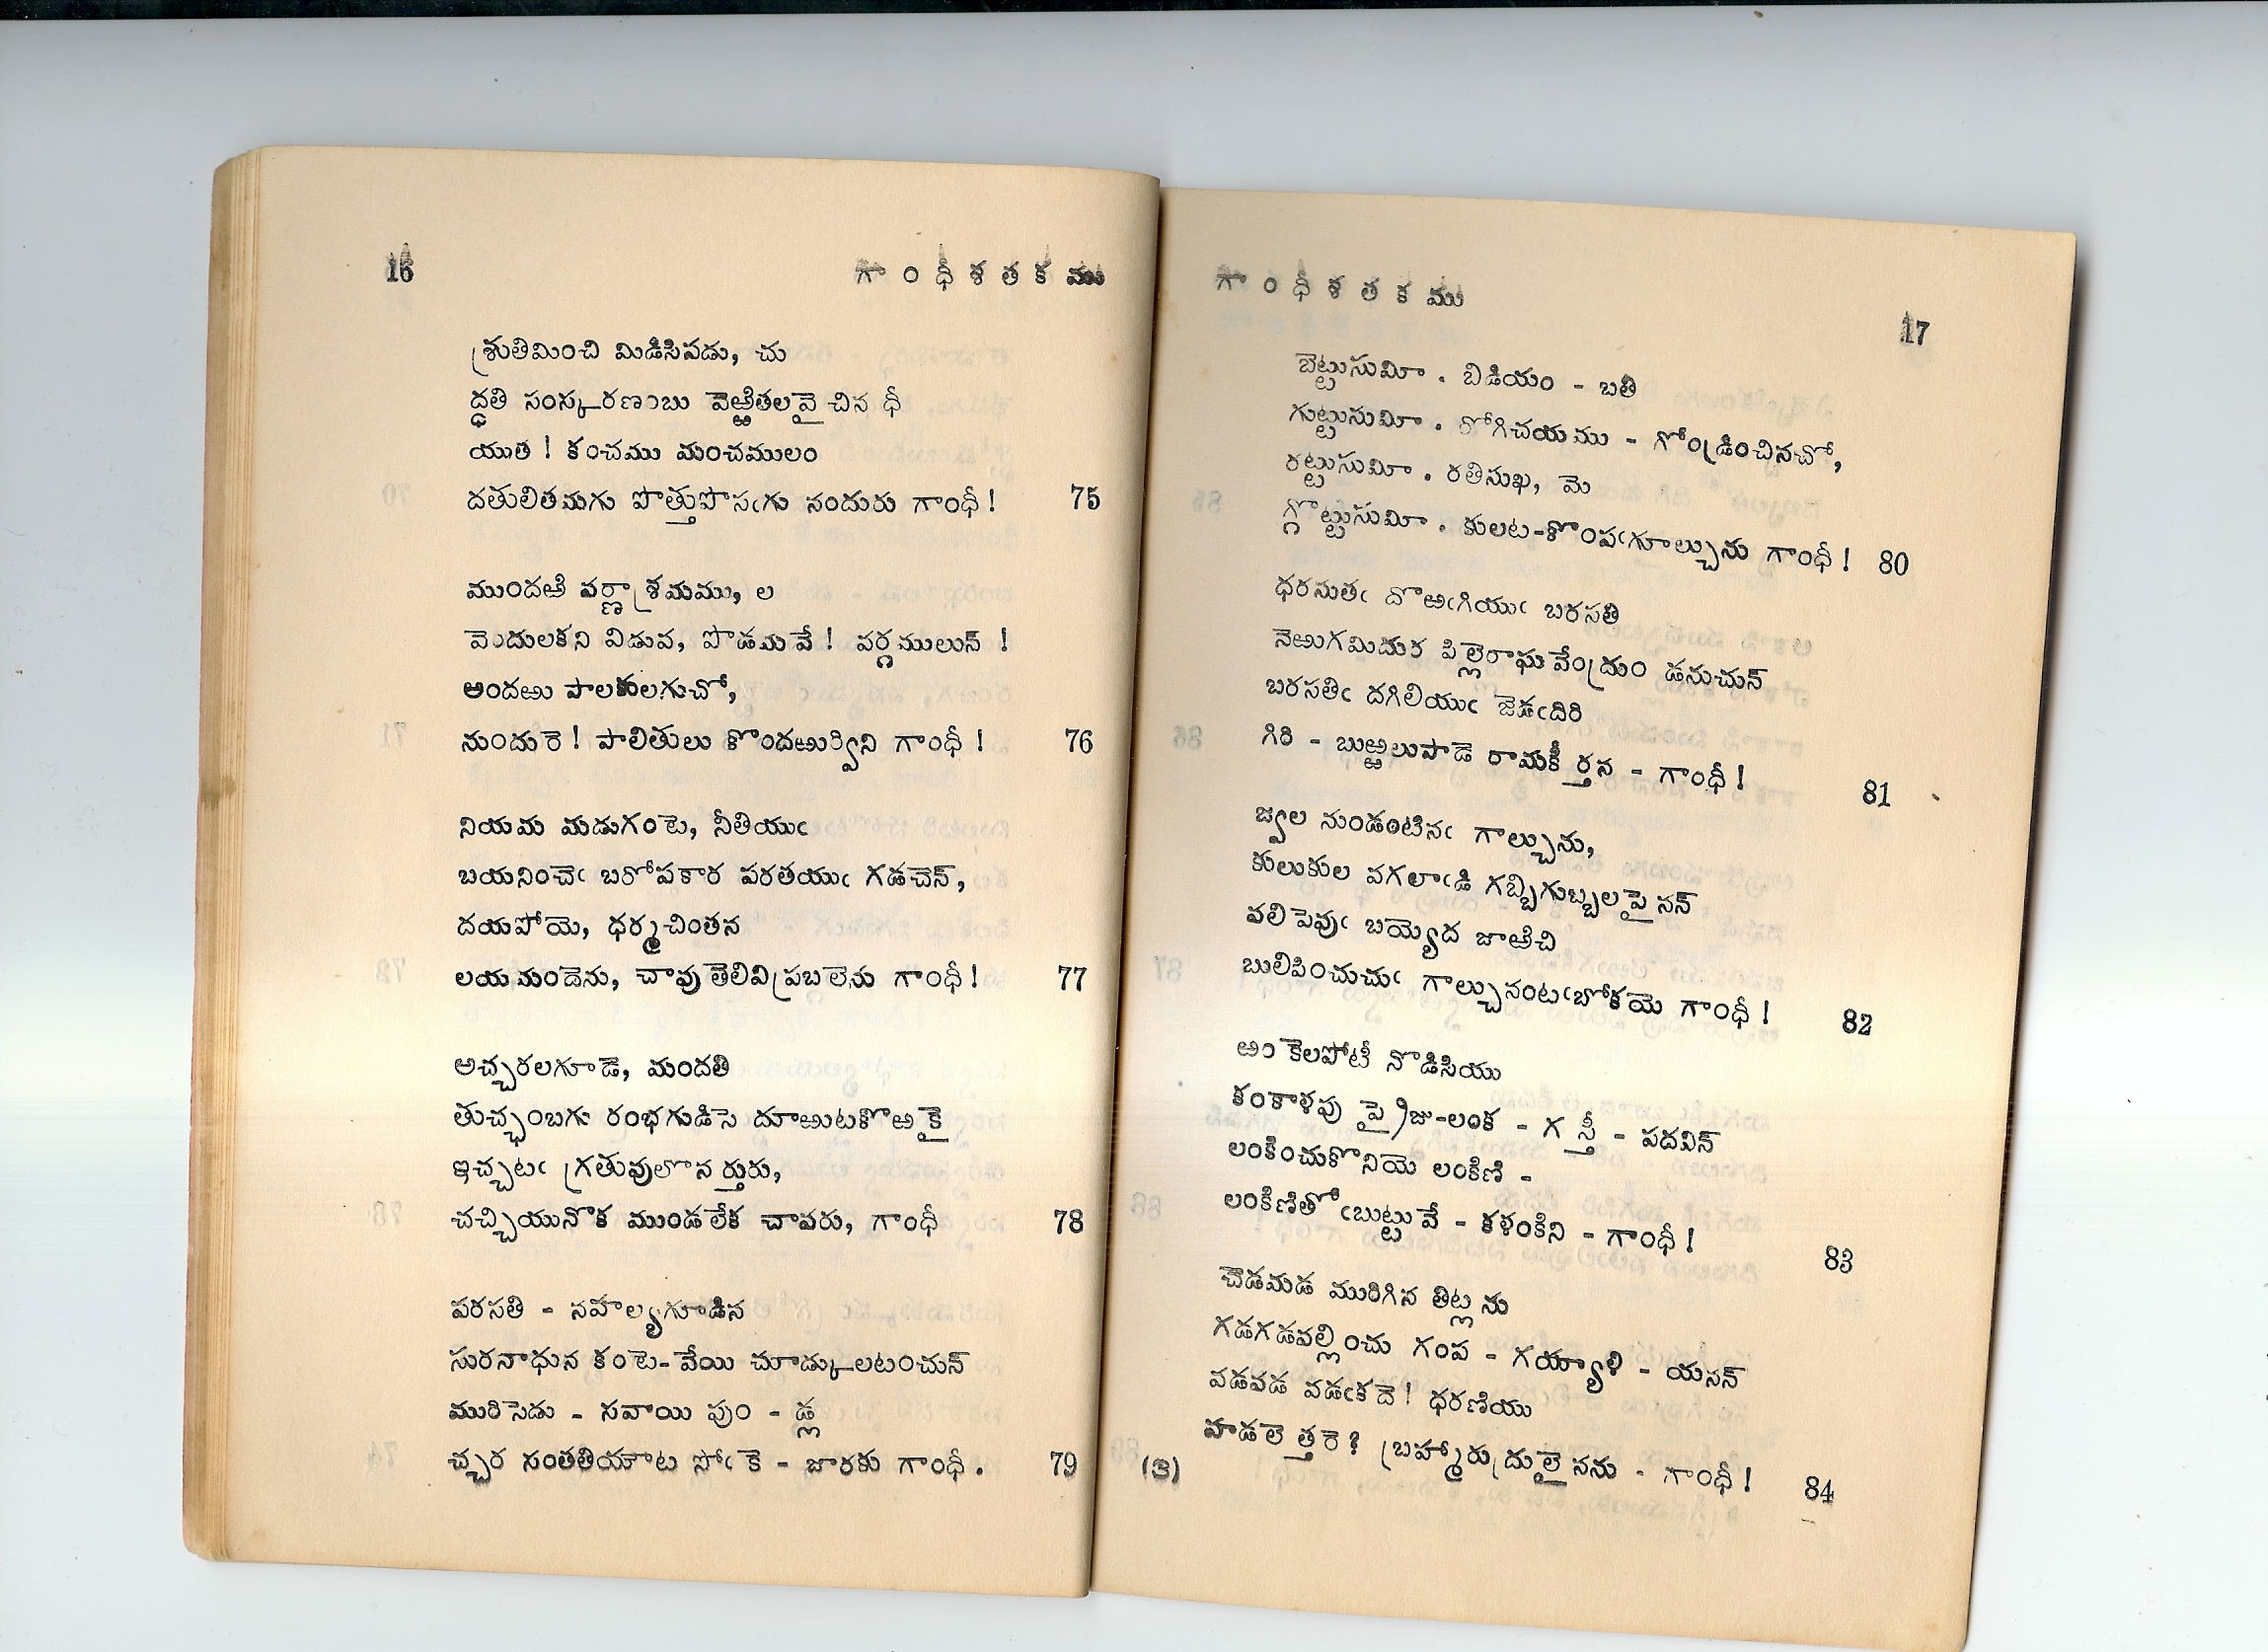 16
గాంధీశతకము
శ్రుతిమించి మిడిసిపడు, చు
ద్ధతి సంస్కరణంబు వెఱ్ఱితలవై చిన ధీ
యుత ! కంచము మంచములం
దతులితమగు పొత్తుపొసఁగు నందురు గాంధీ ! 75
ముందఱి వర్ణాశ్రమము, ల
వెందులకని విడువ, పొడమవే ! వర్గములున్ !
అందఱు పాలకులగుచో,
నుందురె ! పాలితులు కొందఱుర్విని గాంధీ ! 76
నియమ మడుగంటె, నీతియుఁ
బయనించెఁ బరోపకార పరతయుఁ గడచెన్,
దయపోయె, ధర్మచింతన
లయమందెను, చావుతెలివి ప్రబ్బలెను గాంధీ ! 77
అచ్చరలగూడె, మందతి
తుచ్ఛంబగు రంభగుడిసె దూఱుటకొఱకై
ఇచ్చటఁ గ్రతువులొన ర్తురు,
చచ్చియునొక ముండలేక చావరు, గాంధీ 78
పరసతి - నహల్యగూడిన
సురనాధున కంటె-వేయి చూడ్కులటంచున్
మురిసెడు - సవాయి పుం - డ్ల
చ్చర సంతతియాట సోఁకె - జారకు గాంధీ . 79
గాంధీశతకము
17
బెట్టుసుమీ . బిడియం - బతి
గుట్టుసుమీ . రోగిచయము - గోండ్రించినచో,
రట్టుసుమీ . రతిసుఖ, మె
గ్గొట్టుసుమీ . కులట-కొంపఁగూల్చును గాంధీ ! 80
ధరసుతఁ దొఱఁగియుఁ బరసతి
నెఱుగమిదుర పిల్లెరాఘవేంద్రుం డనుచున్
బరసతిఁ దగిలియుఁ జెడఁదిరి
గిరి - బుఱ్ఱలుపాడె రామకీర్తన - గాంధీ ! 81
జ్వల నుండంటినఁ గాల్చును,
కులుకుల వగలాఁడి గబ్బిగుబ్బలపై నన్
వలిపెవుఁ బయ్యెద జాఱిచి
బులిపించుచుఁ గాల్చునంటఁబోకయె గాంధీ ! 82
ఱం కెలపోటీ నొడిసియు
కంకాళపు ప్రైజు-లంక - గ స్తీ - పదవిన్
లంకించుకొనియె లంకిణి -
లంకిణితోఁబుట్టువే - కళంకిని - గాంధీ ! 83
చెడమడ మురిగిన తిట్లను
గడగడవల్లించు గంప - గయ్యాళి - యనన్
వడవడ వడఁకదె ! ధరణియు
హడలె త్తరె ? బ్రహ్మారుద్రులై నను - గాంధీ ! 84
(3)